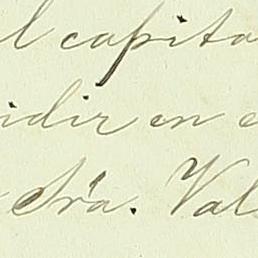 l capita
idir en e
Sra. Val